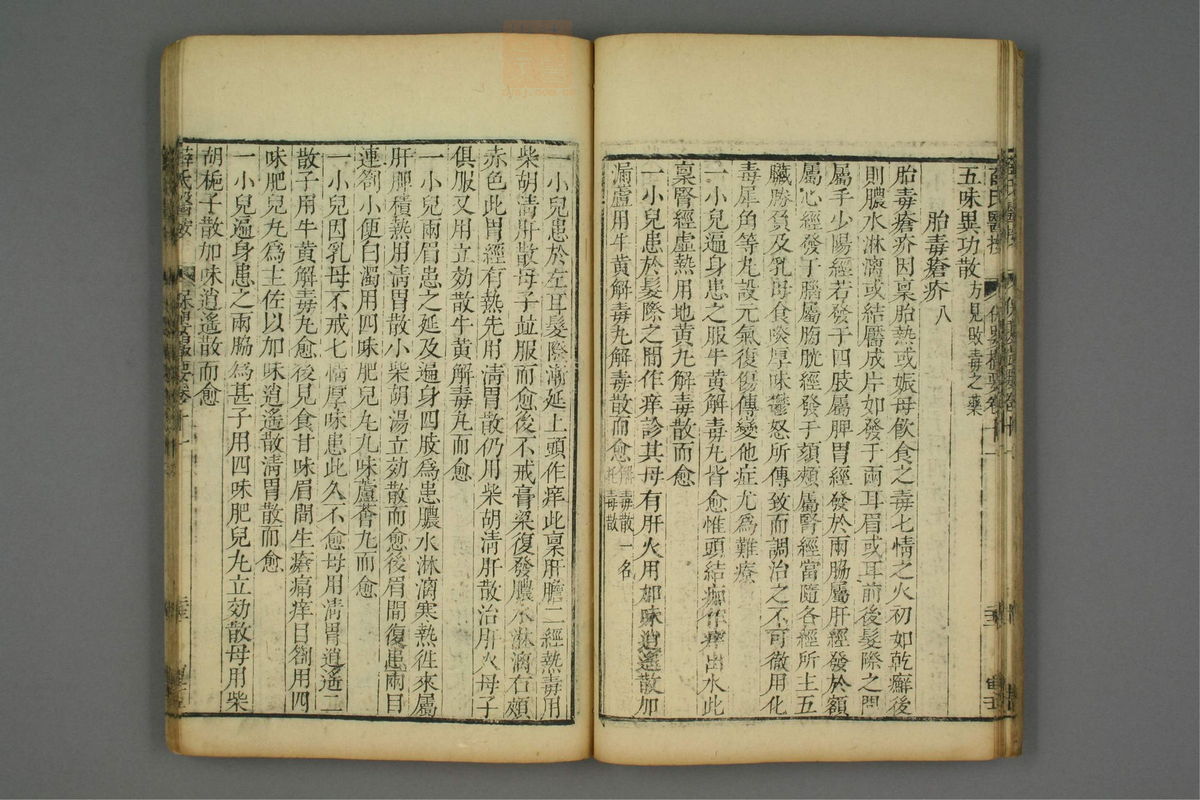 五味異功散方見敗毒之藥
胎毒瘡疥八
胎毒瘡疥因稟胎熱或娠母飲食之毒七情之火初如乾癬後
則膿水淋漓或結靨成片如發于兩耳眉或耳前後髮際之間
屬手少陽經若發于四肢屬脾胃經發於兩脇屬肝經發於額
屬心經發于腦屬膀胱經發于頦頰屬腎經當隨各經所主五
臟勝負及乳母食啖厚味鬱怒所傳致而調治之不可徹用化
毒犀角等丸設元氣復傷傳變他症尤爲難療
一小兒遍身患之服牛黃解毒丸皆愈惟頭結痂作痒出水此
稟腎經虛熱用地黃丸解毒散而愈
一小兒患於髮際之間作痒診其母有肝火用加味逍遙散加
漏蘆用牛黃解毒丸解毒散而愈解毒散一名托毒散
一小兒患於左耳髮際漸延上頭作痒此稟肝膽二經熱毒用
柴胡清肝散母子並服而愈後不戒膏粱復發膿水淋漓右頰
赤色此胃經有熱先用清胃散仍用柴胡清肝散治肝火母子
俱服又用立効散牛黃解毒丸而愈
一小兒兩眉患之延及遍身四肢爲患膿水淋漓寒熱徃來屬
肝脾積熱用清胃散小柴胡湯立効散而愈後眉間復患兩目
連劄小便白濁用四味肥兒丸九味蘆薈丸而愈
一小兒因乳母不戒七情厚味患此久不愈母用清胃逍遙二
散子用牛黃解毒丸愈後兒食甘味眉間生瘡痛痒目劄用四
味肥兒丸爲主佐以加味逍遙散清胃散而愈
一小兒遍身患之兩脇為甚子用四味肥兒丸立効散母用柴
胡梔子散加味逍遙散而愈
薛氏醫按
保嬰撮要卷十一